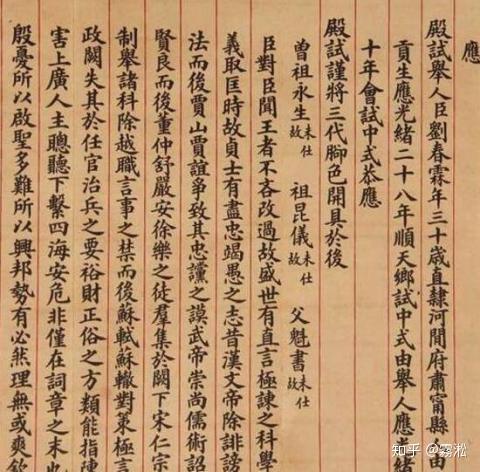 應
殿試舉人臣劉春霖年三十歲直隸河間府肅甯縣人由
貢生應光緒二十八年順天鄉試中式由舉人應
十年會試中式恭應
殿試謹將三代腳色開具於後
曾祖永生未仕故 祖昆儀未仕故 父魁書未仕故
臣對臣聞王者不吝改過故盛世有直言極諫之科學
義取匡時故貞士有盡忠竭愚之志昔漢文帝除誹謗
法而後賈山賈誼爭致其忠讜之謨武帝崇尚儒術詔
賢良而後董仲舒嚴安徐樂之徒羣集於闕下宋仁宗
制舉諸科除越職言事之禁而後蘇軾蘇轍對策極言
政闕失其於任官治兵之要裕財正俗之方類能指陳
害上廣人主聰聽下繫四海安危非僅在詞章之末也
殷憂所以啟聖多難所以興邦勢有必然理無或爽欽
知乎 @霧淞